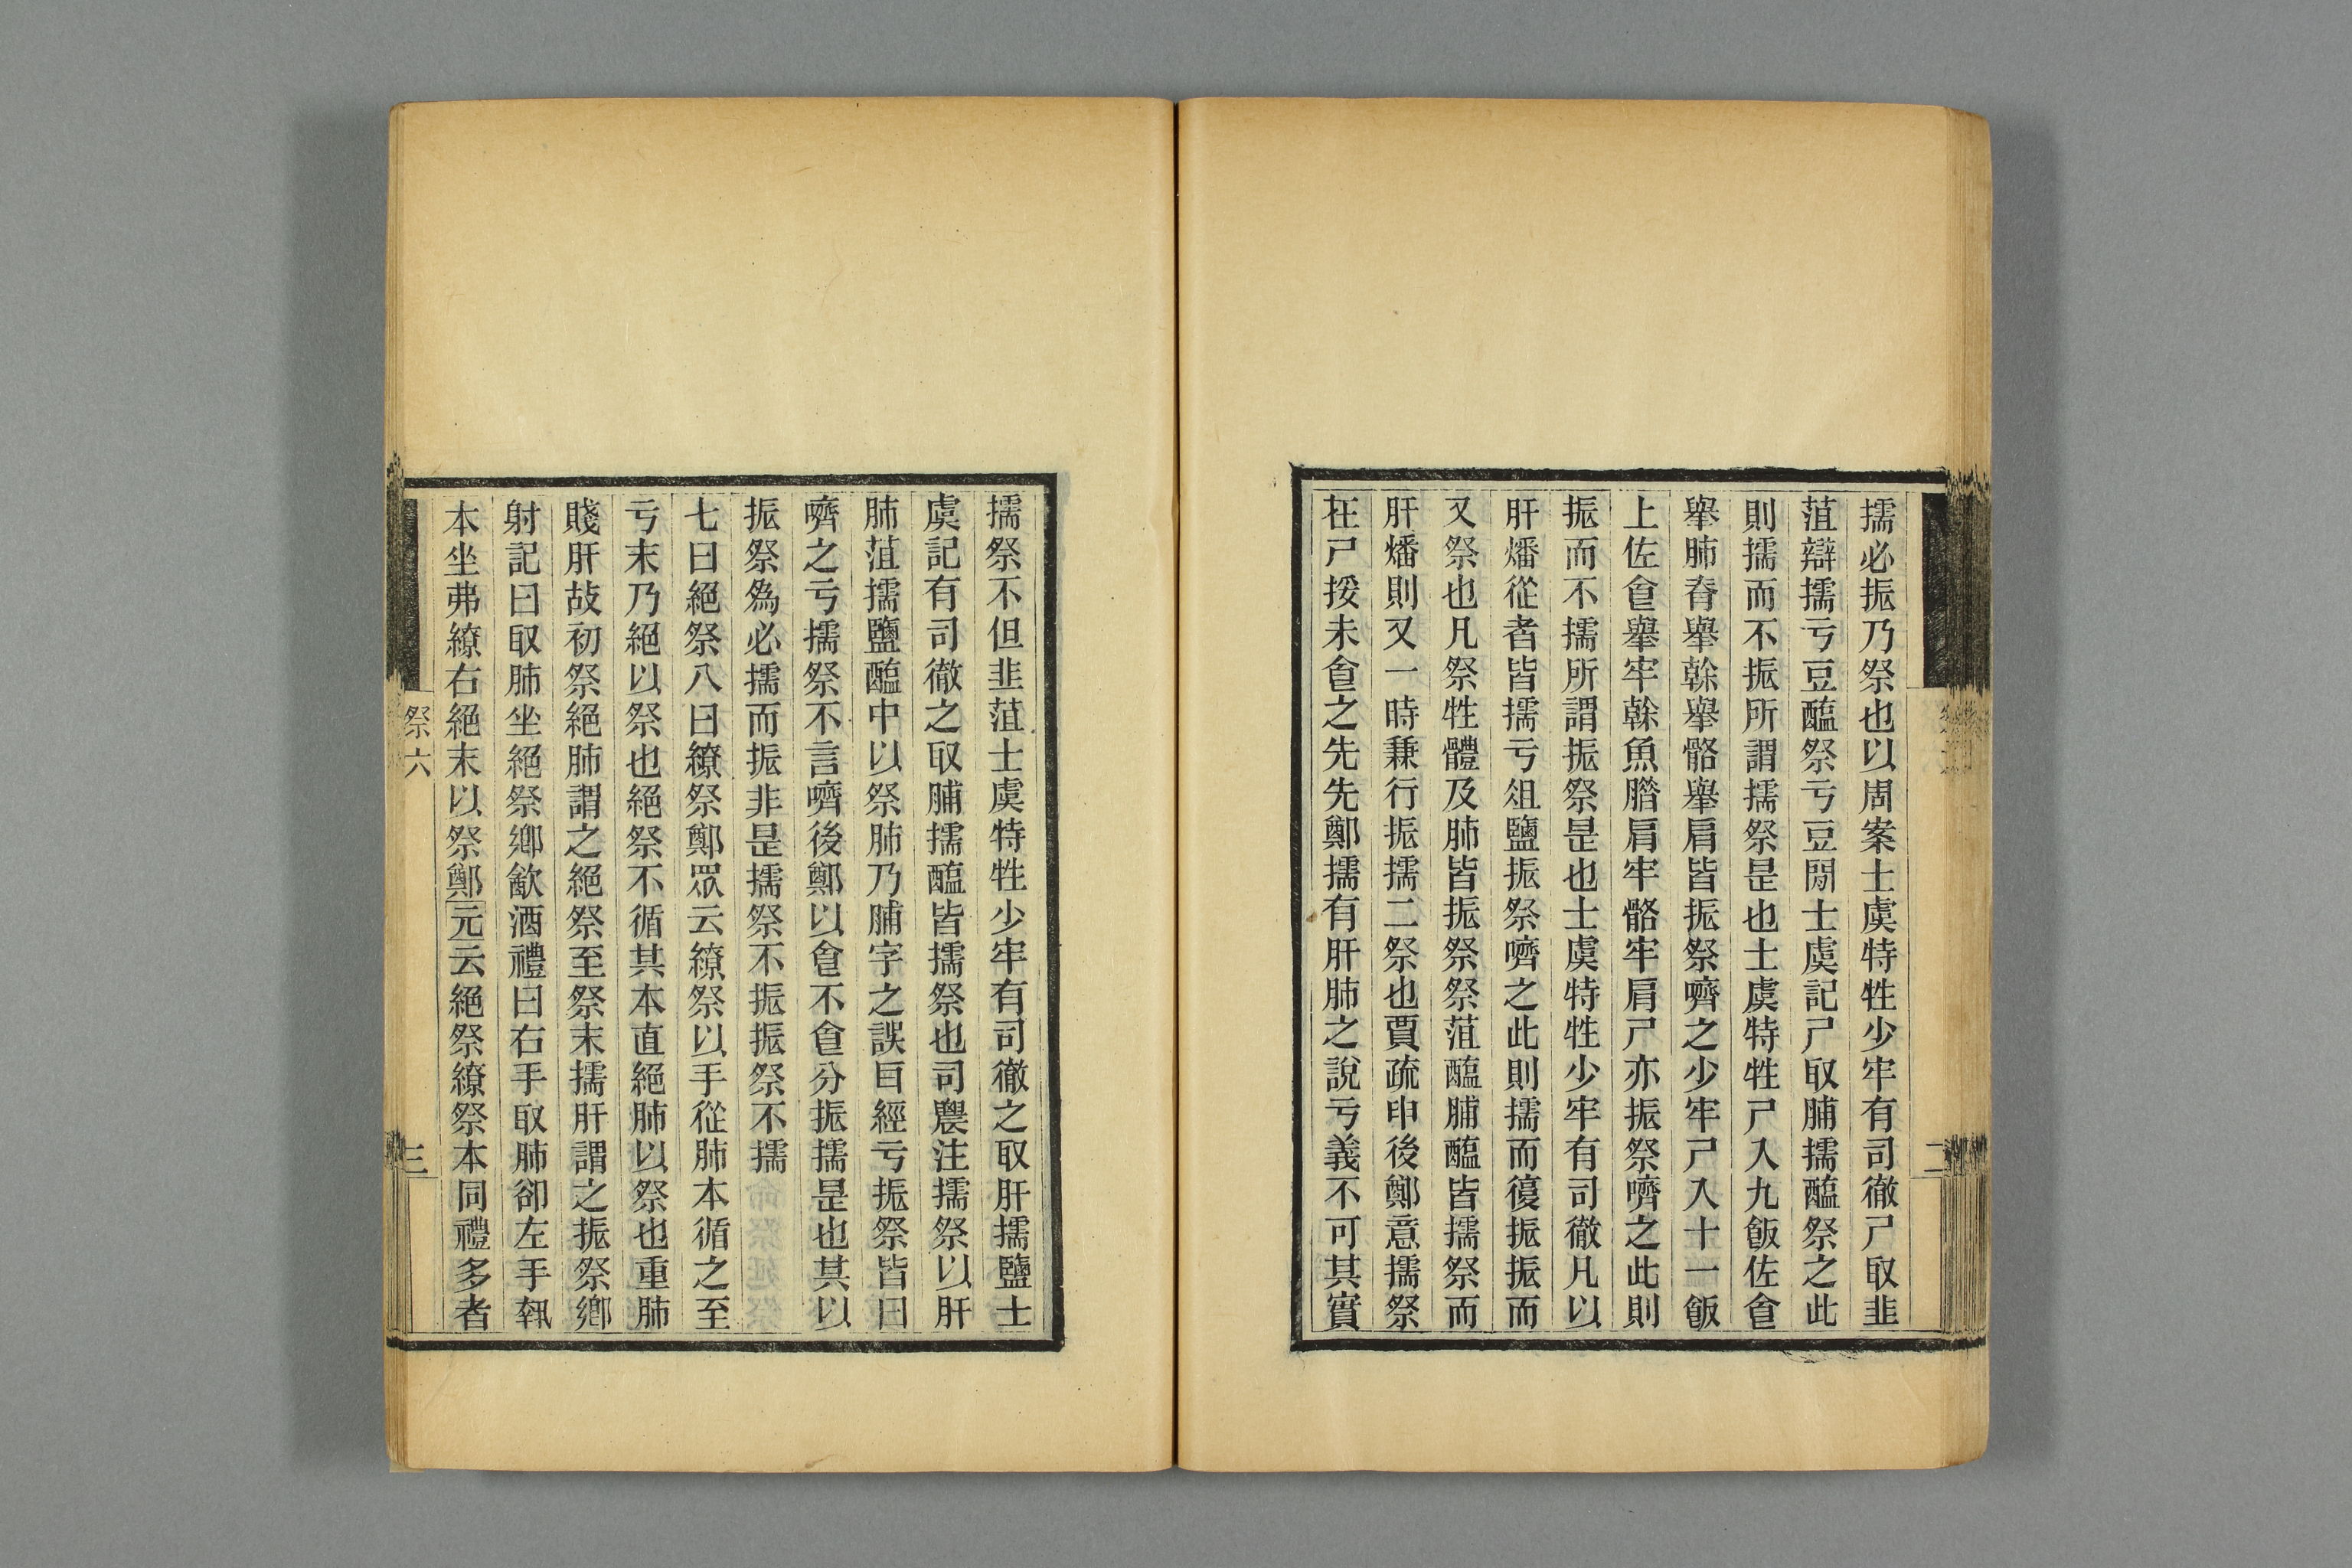 擩必振乃祭也以周案士虞特牲少牢有司徹尸取韭
菹辯擩亏豆醢祭亏豆閒士虞記尸取脯擩醢祭之此
則擩而不振所謂擩祭是也士虞特牲尸入九飯佐𠊊
舉肺脊舉榦舉骼舉肩皆振祭嚌之少牢尸入十一飯
上佐𠊊舉牢榦魚腊肩牢骼牢肩尸亦振祭嚌之此則
振而不擩所謂振祭是也士虞特牲少牢有司徹凡以
肝燔從者皆擩亏俎鹽振祭嚌之此則擩而復振振而
又祭也凡祭牲體及肺皆振祭祭菹醢脯醢皆擩祭而
肝燔則又一時兼行振擩二祭也賈疏申後鄭意擩祭
在尸挼未𠊊之先先鄭擩有肝肺之說亏義不可其實
擩祭不但韭菹士虞特牲少牢有司徹之取肝擩鹽士
虞記有司徹之取脯擩醢皆擩祭也司農注擩祭以肝
肺菹擩鹽醢中以祭肺乃脯字之誤㠯經亏振祭皆曰
嚌之亏擩祭不言嚌後鄭以𠊊不𠊊分振擩是也其以
振祭爲必擩而振非是擩祭不振振祭不擩
七曰絕祭八曰繚祭鄭眾云繚祭以手從肺本循之至
亏末乃絕以祭也絕祭不循其本直絕肺以祭也重肺
賤肝故初祭絕肺謂之絕祭至祭末擩肝謂之振祭鄉
射記曰取肺坐絕祭鄉飲酒禮曰右手取肺卻左手執
本坐弗繚右絕末以祭鄭元云絕祭繚祭本同禮多者
祭六
三
二